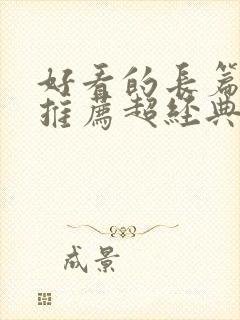 好看的長篇
推薦超經典
成景